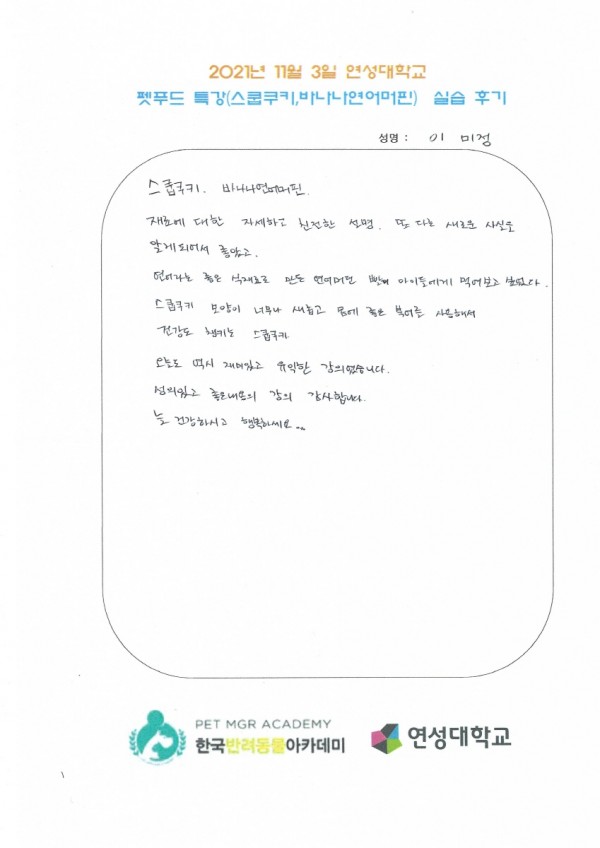 2021년 11월 3일 연성대학교
펫푸드 특강(스쿱쿠키,바나나연어머핀) 실습 후기
성명 : 이 미정
스쿱쿠키. 바나나연어머핀.
재료에 대한 자세하고 친절한 설명. 또 다른 새로운 사실을
알게되어서 좋았고.
연어라는 좋은 식재료로 만든 연어머핀 빨리 아이들에게 먹여보고 싶었다.
스쿱쿠키 모양이 너무나 새롭고 몸에 좋은 북어를 사용해서
건강도 챙기는 스쿱쿠키
오늘도 역시 재미있고 유익한 강의였습니다.
성의있고 좋은내용의 강의 감사합니다.
늘 건강하시고 행복하세요...
PET MGR ACADEMY
한국반려동물아카데미
연성대학교